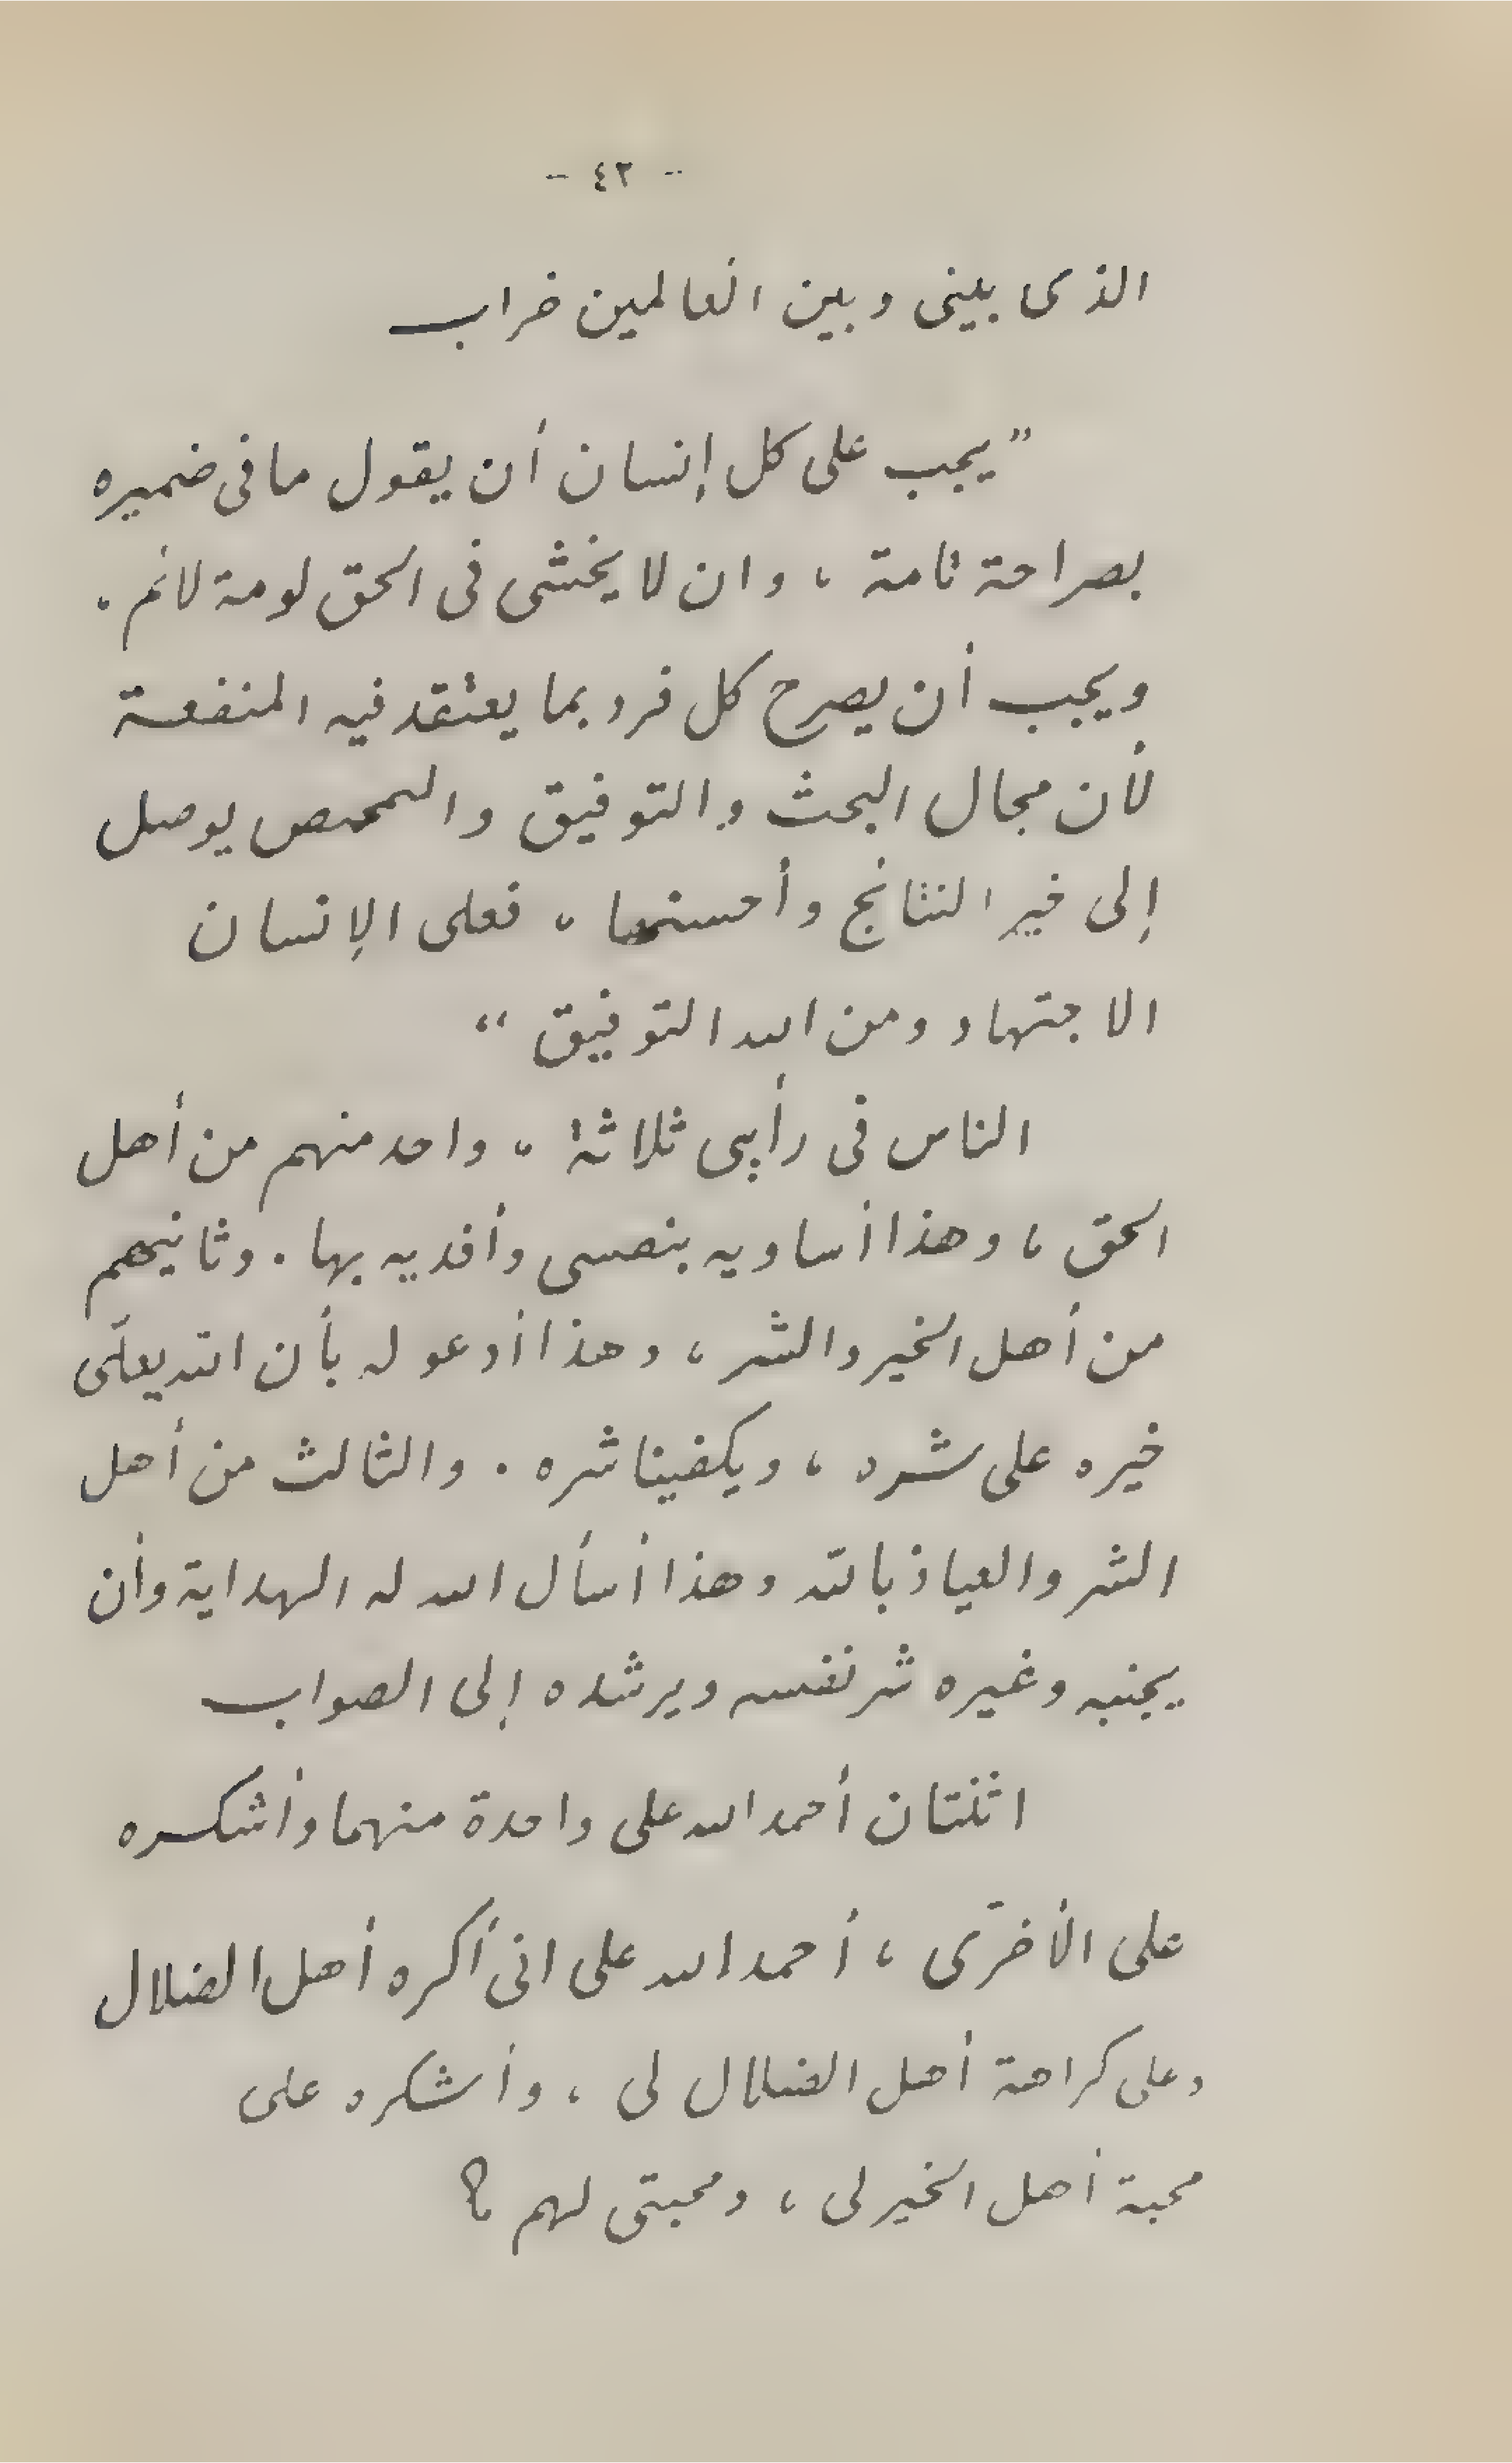 - ٤٢ -
الذى بينى وبين العالمين خراب
” يجب على كل إنسان أن يقول ما فى ضميره
بصراحة تامة ، وان لا يخشى فى الحق لومة لائم .
ويجب أن يصرح كل فرد بما يعتقد فيه المنفعة
لأن مجال البحث والتوفيق والتمحيص يوصل
إلى خير النتائج وأحسنها ، فعلى الإنسان
الاجتهاد ومن الله التوفيق “
الناس فى رأيى ثلاثة ، واحد منهم من أهل
الحق ، وهذا أساويه بنفسى وأفديه بها . وثانيهم
من أهل الخير والشر ، وهذا أدعو له بأن الله يعلّى
خيره على شره ، ويكفينا شره . والثالث من أهل
الشر والعياذ بالله وهذا أسأل الله له الهداية وأن
يجنبه وغيره شر نفسه ويرشده إلى الصواب
اثنتان أحمد الله على واحدة منهما وأشكره
على الأخرى ، أحمد الله على انى أكره أهل الضلال
وعلى كراهة أهل الضلال لى ، وأشكره على
محبة أهل الخير لى ، ومحبتى لهم